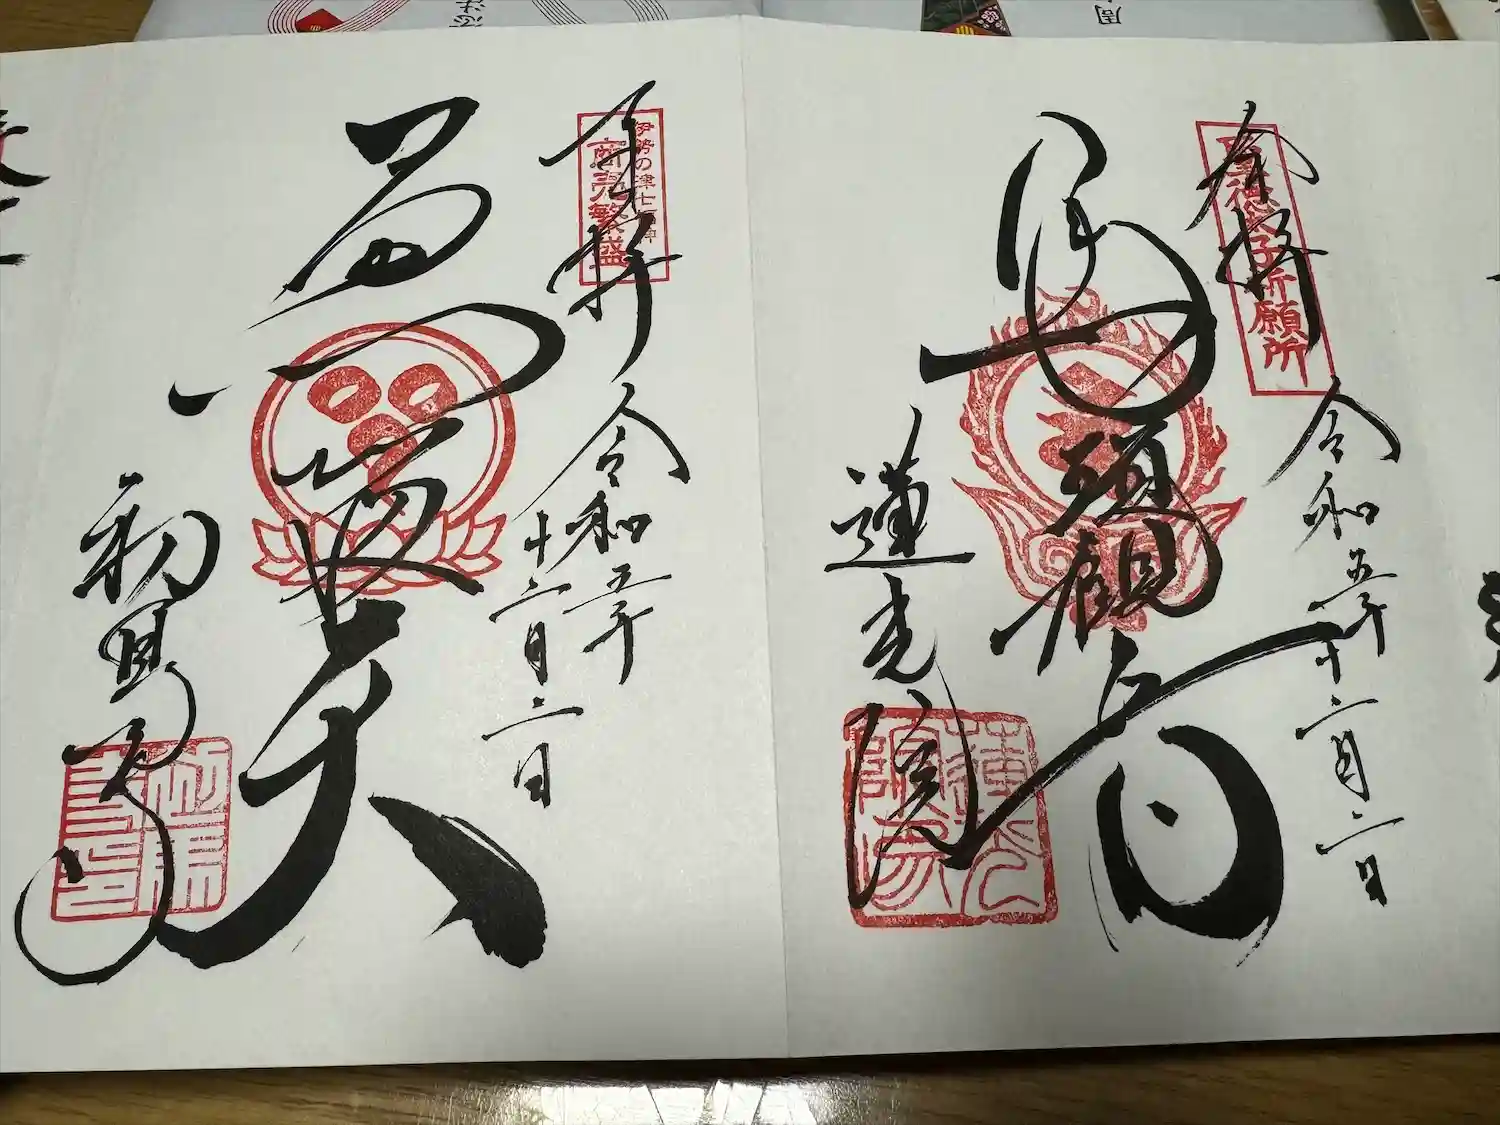 奉拝
聖徳太子祈願所
令和五年十二月二日
馬頭観音
蓮光院
奉拝
伊勢の津七福神
商売繁盛
令和五年
十二月二日
初馬寺